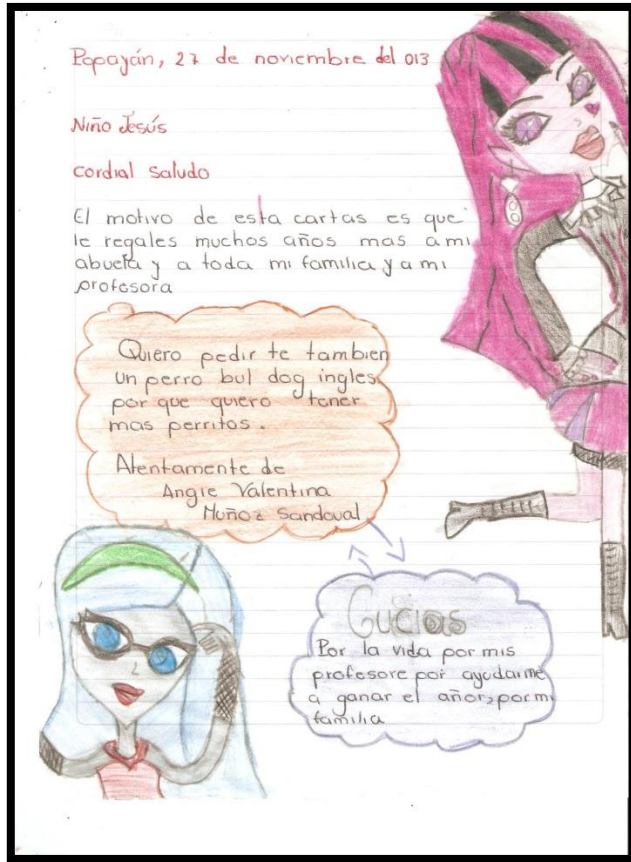 Popayán, 27 de noviembre del 013
Niño Jesús
cordial saludo
El motivo de esta cartas es que
le regales muchos años mas a mi
abuela y a toda mi familia y a mi
profesora
Quiero pedir te tambien
un perro bul dog ingles
por que quiero tener
mas perritos.
Atentamente de
Angie Valentina
Muñoz Sandoval
Gucias
Por la vida por mis
profesore por ayudarme
a ganar el añor, por mi
familia